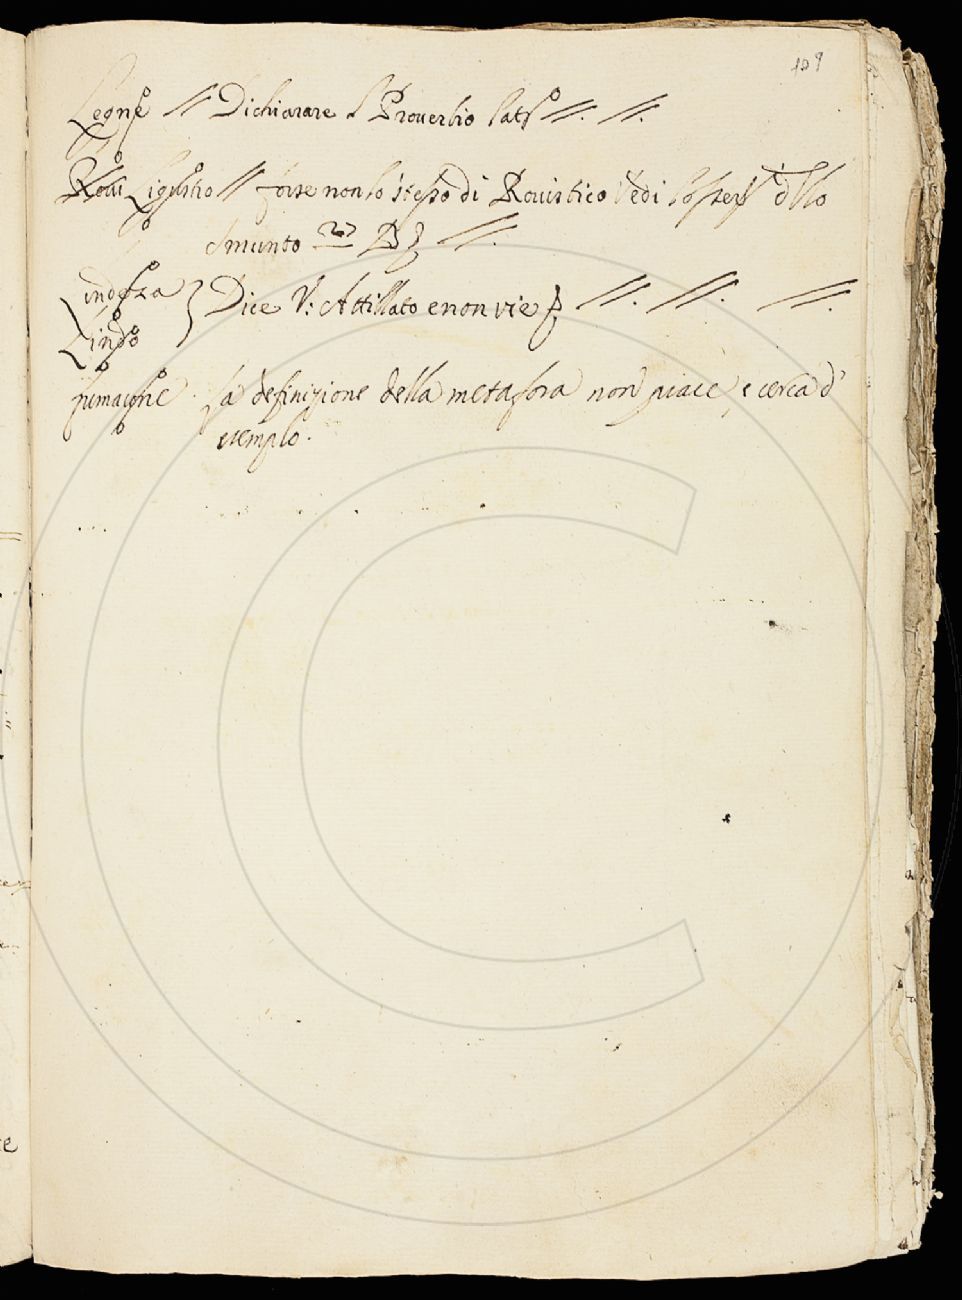 109
Legne // Dichiarare l Proverbio lat° //. //.
Roui Ligustro // forse non lo istesso di Rouistico Vedi
smunto
Lindezza } Dice V: Attillato e non vi e //. //. //.
Lindo
lumacone la definizione della metafora non piace, e cerca d'
esemplo.